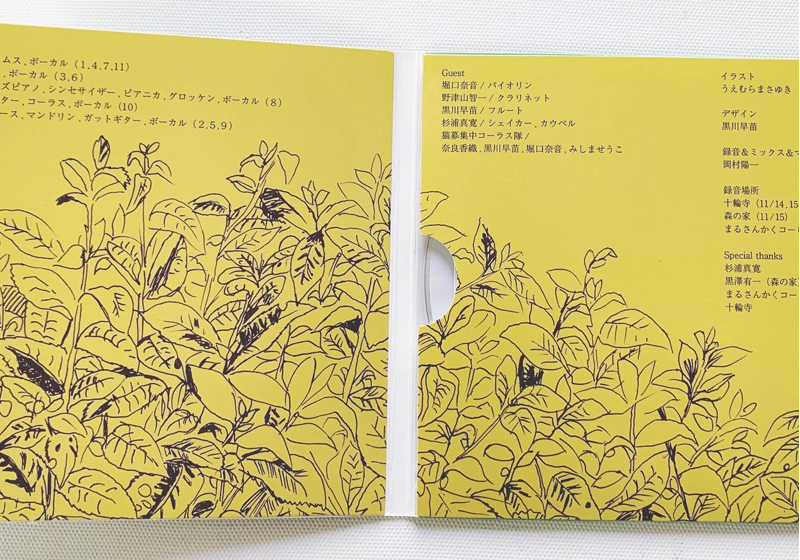 ムス,ボーカル (1,4,7,11)
,ボーカル (3,6)
ズピアノ,シンセサイザー,ピアニカ,グロッケン,ボーカル (8)
ター,コーラス,ボーカル (10)
ース,マンドリン,ガットギター,ボーカル (2,5,9)
Guest
堀口奈音 / バイオリン
野津山智一 / クラリネット
黒川早苗 / フルート
杉浦真寛 / シェイカー,カウベル
猫募集中コーラス隊 /
奈良香織,黒川早苗,堀口奈音,みしませうこ
イラスト
うえむらまさゆき
デザイン
黒川早苗
録音&ミックス&マ
岡村陽一
録音場所
十輪寺 (11/14,15
森の家 (11/15)
まるさんかくコー
Special thanks
杉浦真寛
黒澤有一 (森の家)
まるさんかくコー
十輪寺